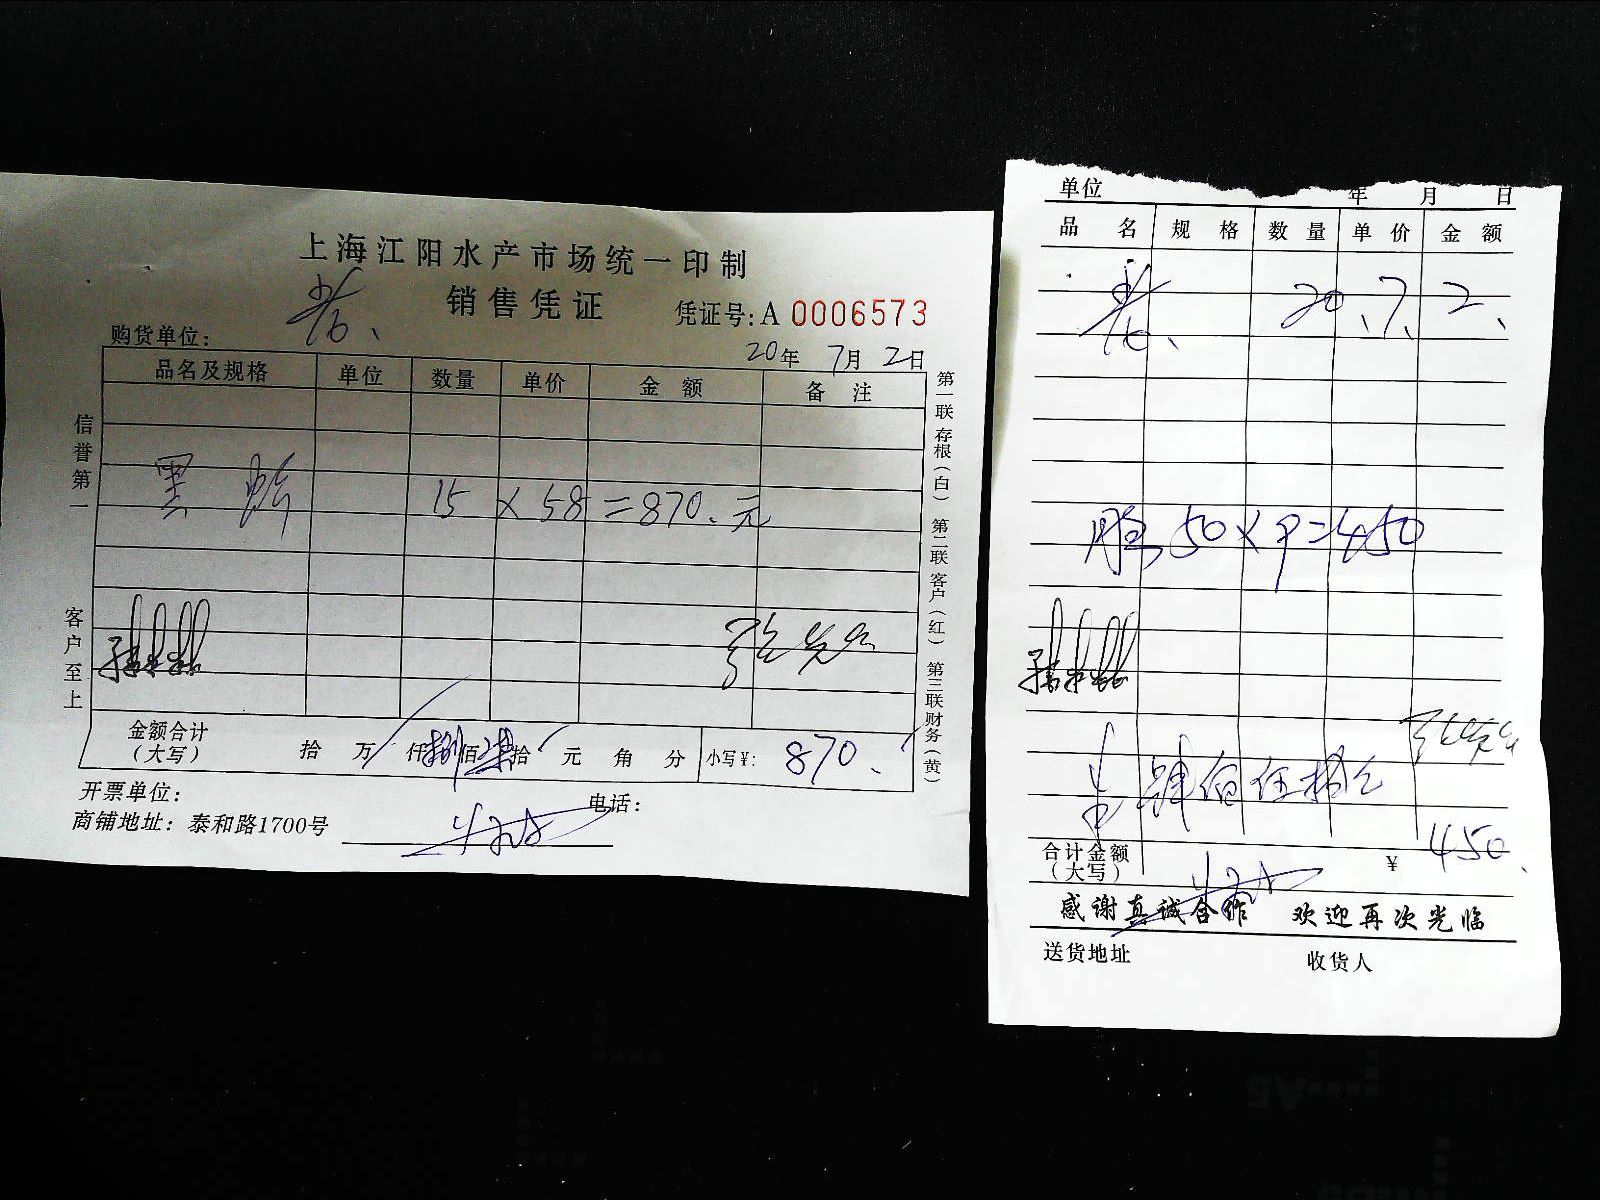 上海江阳水产市场统一印制
销售凭证 凭证号:A 0006573
购货单位:
20年 7月 2日
品名及规格 单位 数量 单价 金额 备注
黑 15 × 58 = 870. 元
金额合计(大写) 拾 万 仟 捌 佰 柒 拾 元 角 分 小写¥: 870.
开票单位: 电话:
商铺地址: 泰和路1700号
信誉第一
客户至上
第一联存根(白) 第二联客户(红) 第三联财务(黄)
单位 年 月 日
品名 规格 数量 单价 金额
20.7.2.
50×9=450
肆佰伍拾元
合计金额(大写) ¥ 450.
感谢真诚合作 欢迎再次光临
送货地址 收货人